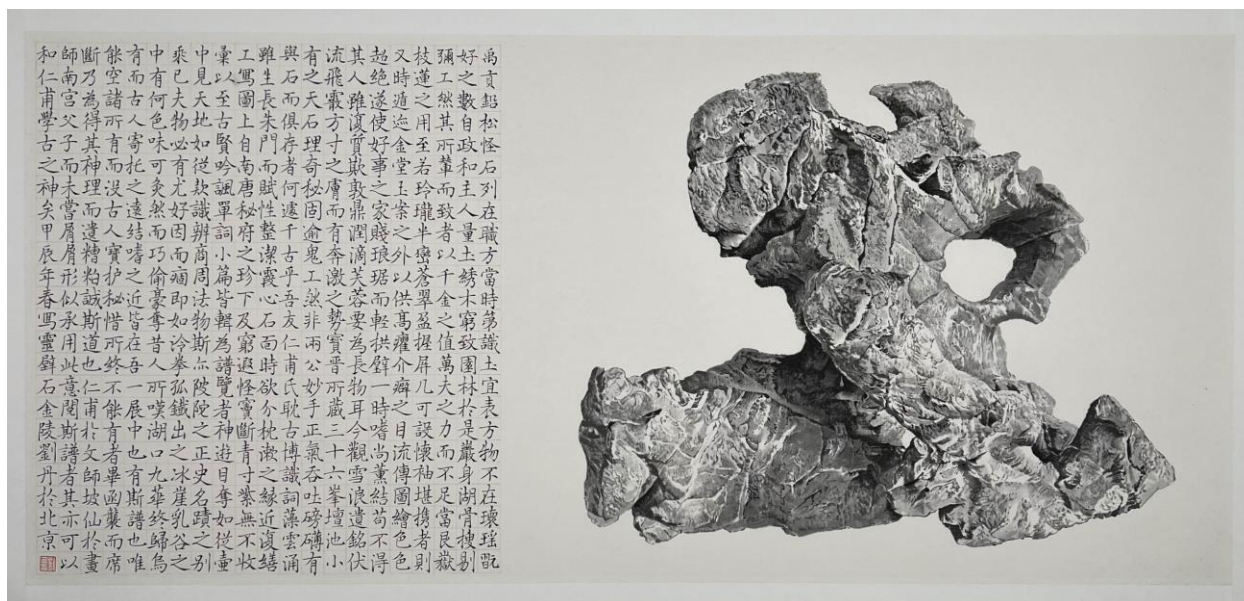 禹貢鉛松怪石列在職方當時第識土宜表方物不在瓌瑤翫
好之數自政和主人量土綉木窮致園林於是巖身湖骨别
彌工然其所輦而致者以千金之值萬夫之力而不足當艮嶽
枝蓮之用至若玲瓏半巒蒼翠盈握屏几可設懷袖堪携者則
又時遁迹金堂玉案之外以供高癯介癖之目流傳圖繪色色
超绝遂使好事之家賤琅琚而輕拱璧一時嗜尚薰結苟不得
其人雖復質欺敦鼎潤滴芙蓉要為長物耳今觀雪浪遺銘伏
流飛霰方寸之膚而有奔激之勢寳晋所藏三十六峯壇池小
有之天石理奇秘固逾鬼工然非兩公妙手正氣吞吐磅礴有
與石而俱存者何遽千古乎吾友仁甫氏耽古博識詞藻雲涌
雖生長朱門而賦性整潔霞心石面時欲分枕漱之縁近復繕
工寫圖上自南唐秘府之珍下及窮遐怪竇斷青寸紫無不收
彙以至古賢吟諷單詞小篇皆輯為譜覽者神遊目奪如從壺
中見天地如從欵識辨商周法物斯亦陂陀之正史名蹟之别
乘已夫物必有尤好因而痼即如泠拳孤鐵出之冰崖乳谷之
中有何色味可灸然而巧偷豪奪昔人所嘆湖口九華終歸烏
有而古人寄托之遠結嗜之近皆在吾一展中也有斯譜也唯
能空諸所有而没古人寳护秘惜所终不能有者畢函襲而席
斷乃為得其神理而遺糟粕誠斯道也仁甫於文師坡仙於畫
師南宫父子而未嘗屑屑形似承用此意閲斯譜者其亦可以
和仁甫學古之神矣甲辰年春寫靈璧石金陵劉丹於北京